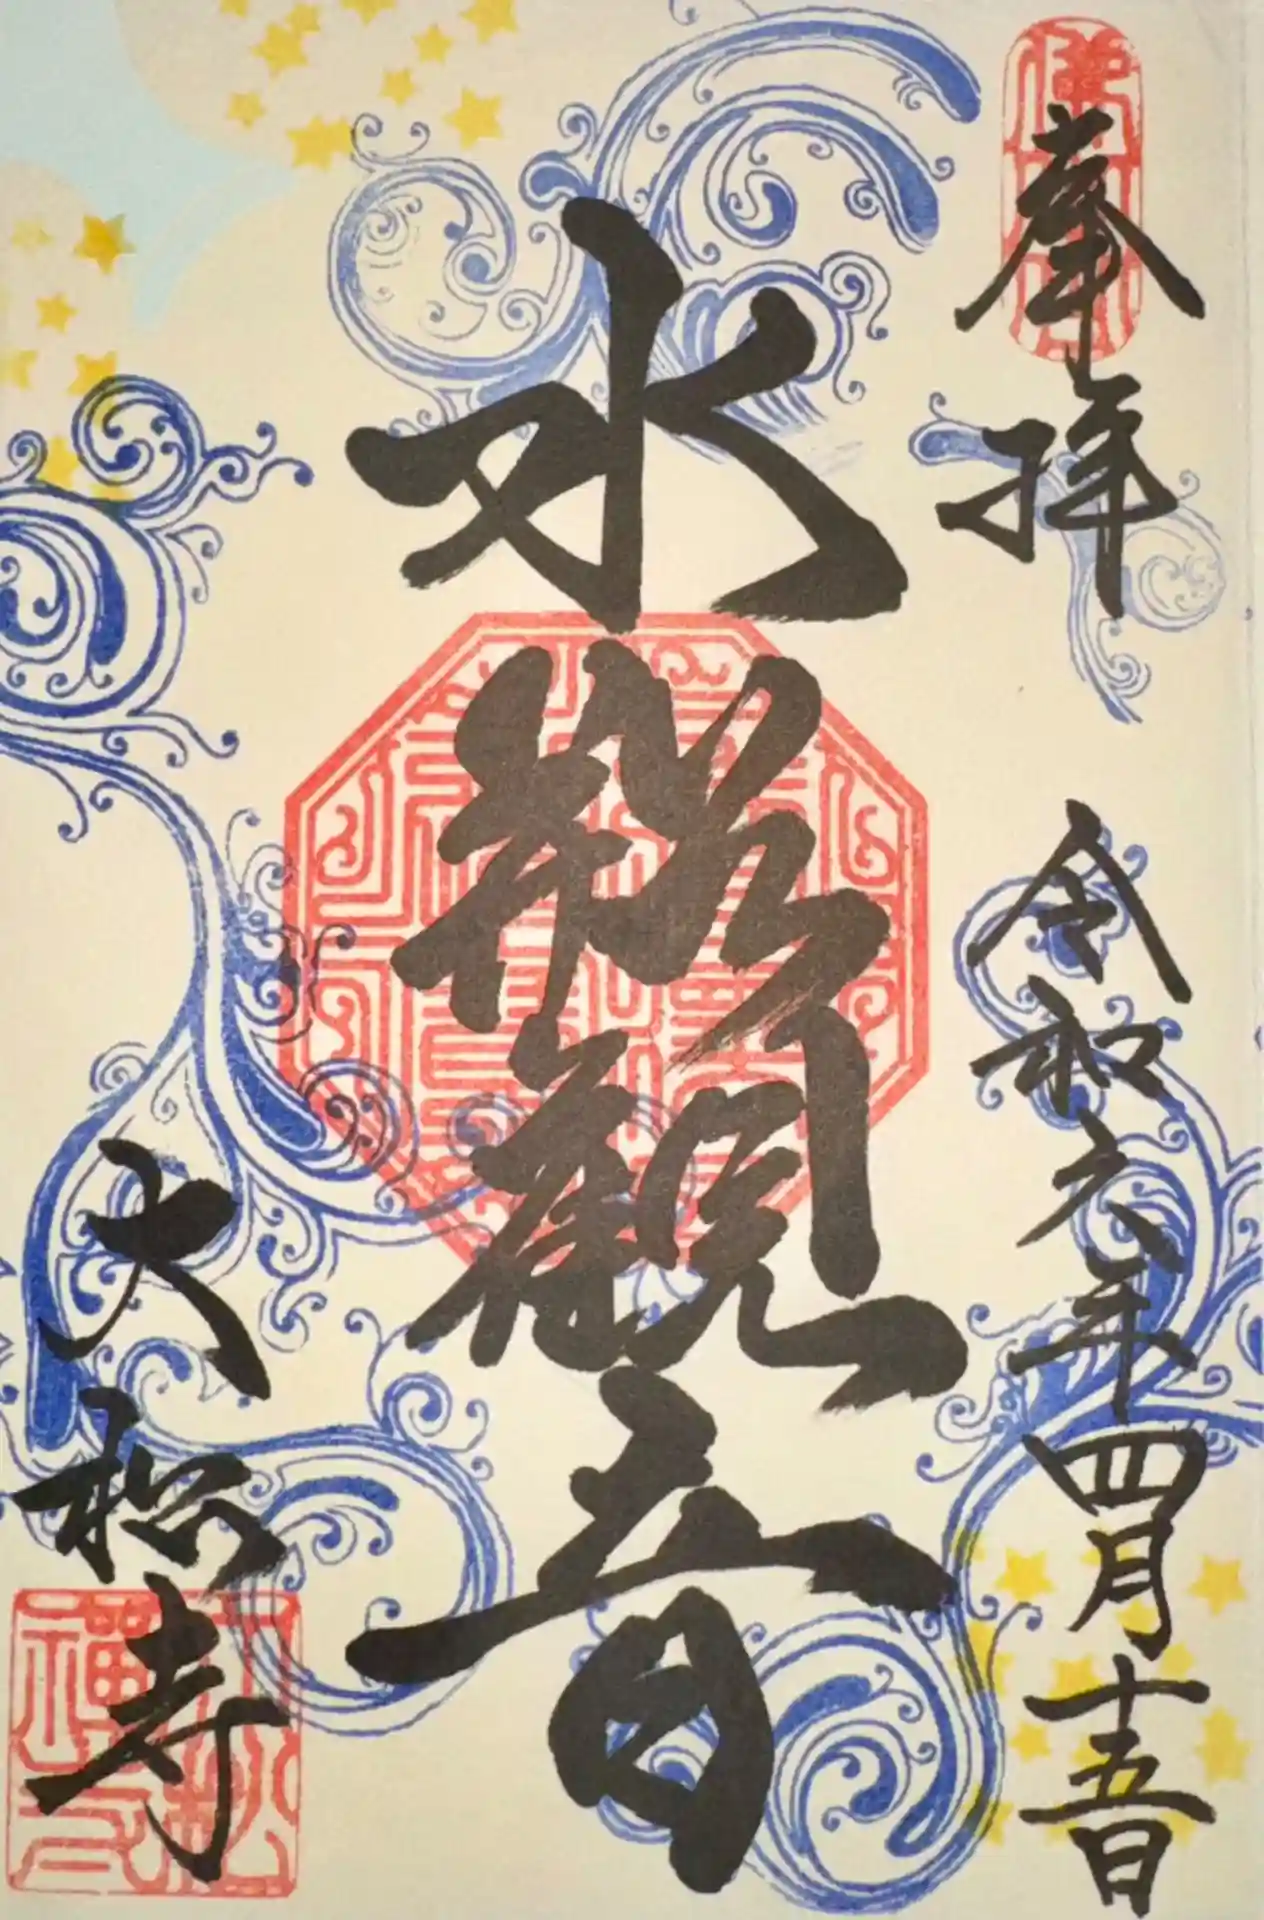 奉拝
令和六年四月十五日
水 觀音
大松寺